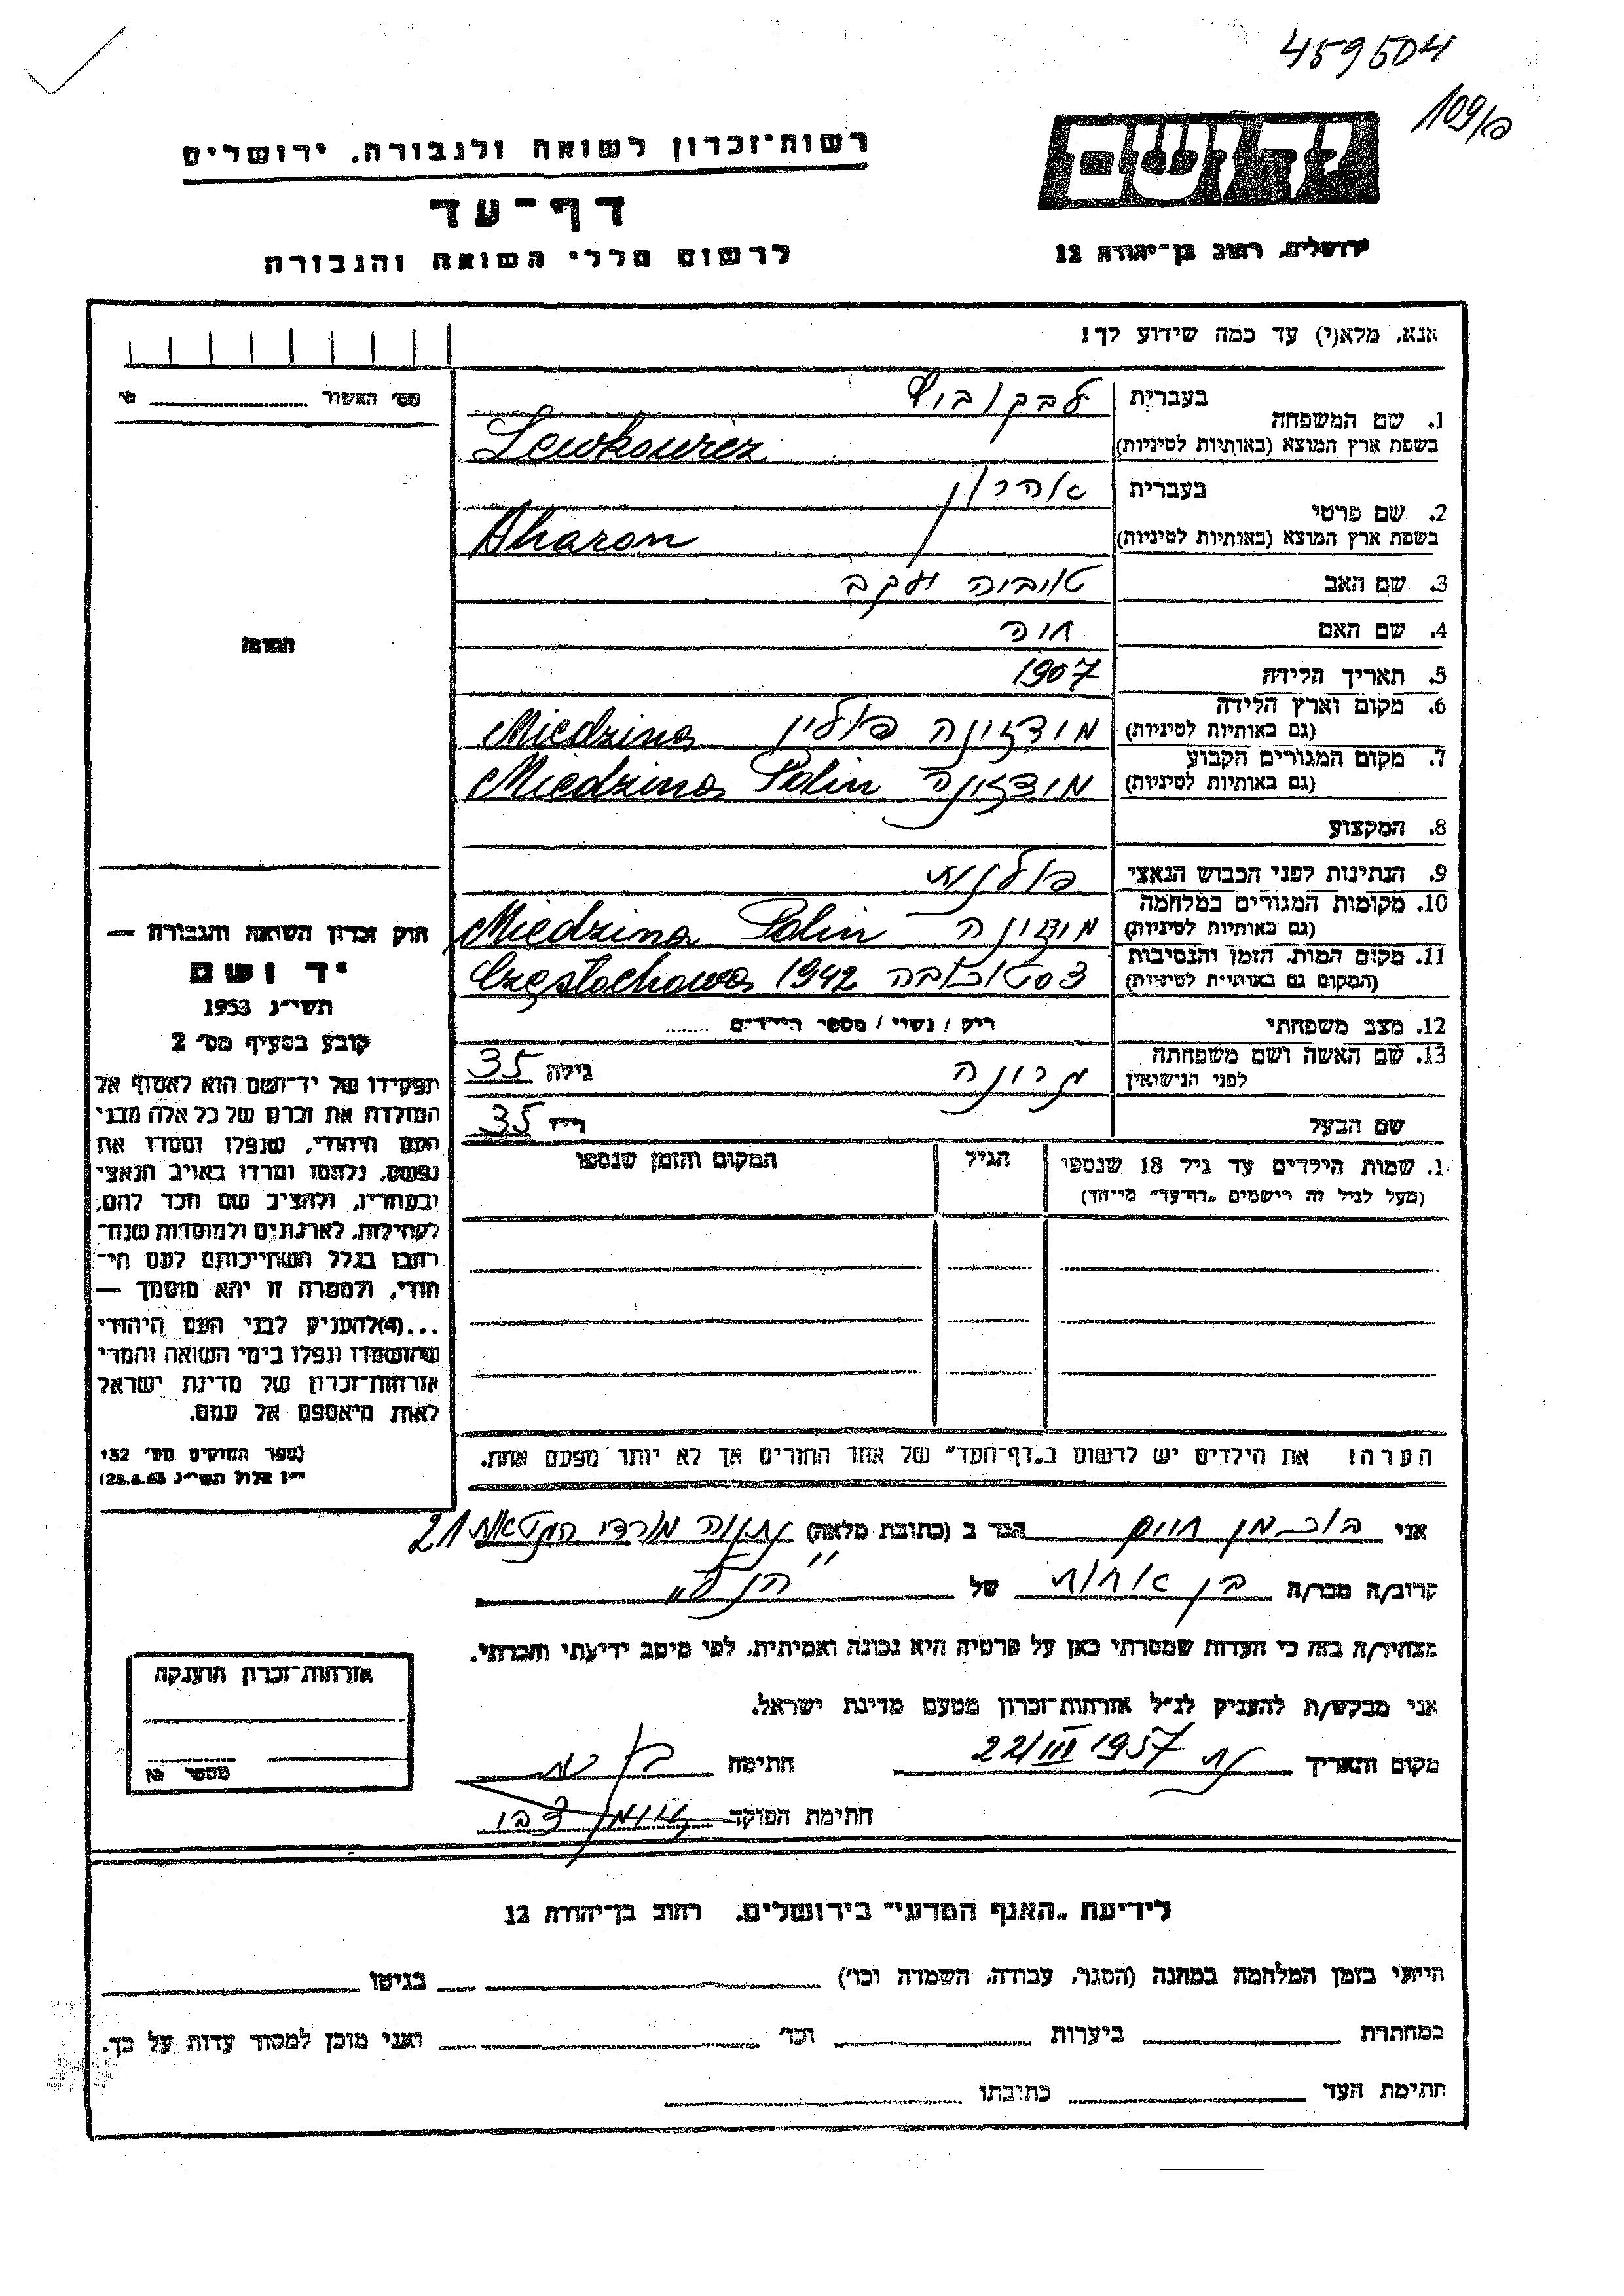 459504
109/פ
יד ושם
ירושלים, רחוב בן־יהודה 12
רשות־זכרון לשואה ולגבורה, ירושלים
דף־עד
לרשום חללי השואה והגבורה
אנא, מלא(י) עד כמה שידוע לך!
מס' האשור
1. שם המשפחה
בעברית
לבקוביץ
בשפת ארץ המוצא (באותיות לטיניות)
Lewkowicz
2. שם פרטי
בעברית
אהרון
בשפת ארץ המוצא (באותיות לטיניות)
Aharon
3. שם האב
טוביה יעקב
4. שם האם
חוה
5. תאריך הלידה
1907
6. מקום וארץ הלידה
(גם באותיות לטיניות)
מידזינה פולין Miedzina
7. מקום המגורים הקבוע
(גם באותיות לטיניות)
מידזינה Miedzina Polin
8. המקצוע
9. הנתינות לפני הכבוש הנאצי
פולנית
10. מקומות המגורים במלחמה
(גם באותיות לטיניות)
Miedzina Polin
11. מקום המות, הזמן והנסיבות
(המקום גם באותיות לטיניות)
צסטוכובה 1942 Częstochowa
12. מצב משפחתי
רוק / נשוי / מספר הילדים
13. שם האשה ושם משפחתה
לפני הנישואין
גילה 35
שם הבעל
גילו 35
שמות הילדים עד גיל 18 שנספו
(מעל לגיל זה רישמים "דף־עד" מייחד)
הגיל
המקום והזמן שנספו
הערה! את הילדים יש לרשום ב"דף־העד" של אחד ההורים אך לא יותר מפעם אחת.
חוק זכרון השואה והגבורה —
יד ושם
תשי"ג 1953
קובע בסעיף מס' 2
תפקידו של יד־ושם הוא לאסוף אל
המולדת את זכרם של כל אלה מבני
העם היהודי, שנפלו ומסרו את
נפשם, נלחמו ומרדו באויב הנאצי
ובעוזריו, ולהציב שם וזכר להם,
לקהילות, לארגונים ולמוסדות שנח־
רבו בגלל השתייכותם לעם היה־
הודי, ולמטרה זו יהא מוסמך —
...(4) להעניק לבני העם היהודי
שהושמדו ונפלו בימי השואה והמרי
אזרחות־זכרון של מדינת ישראל
לאות היאספם אל עמם.
(ספר החוקים מס' 132
י"ז אלול תשי"ג 28.8.53)
אני בוכמן חיים הגר ב (כתובת מלאה) נתניה מורדי הגטאות 21
קרוב/ה מכר/ה בן אחות של "הנ"ל"
מצהיר/ה בזה כי העדות שמסרתי כאן על פרטיה היא נכונה ואמיתית, לפי מיטב ידיעתי והכרתי.
אני מבקש/ת להעניק לנ"ל אזרחות־זכרון מטעם מדינת ישראל.
מקום ותאריך 22/III 1957 חתימה
חתימת הפוקד
אזרחות־זכרון הוענקה
מספר
לידיעת "האגף המדעי" בירושלים, רחוב בן־יהודה 12
הייתי בזמן המלחמה במחנה (הסגר, עבודה, השמדה וכו') בגיטו
במחתרת ביערות וכו' ואני מוכן למסור עדות על כך.
חתימת העד כתיבתו